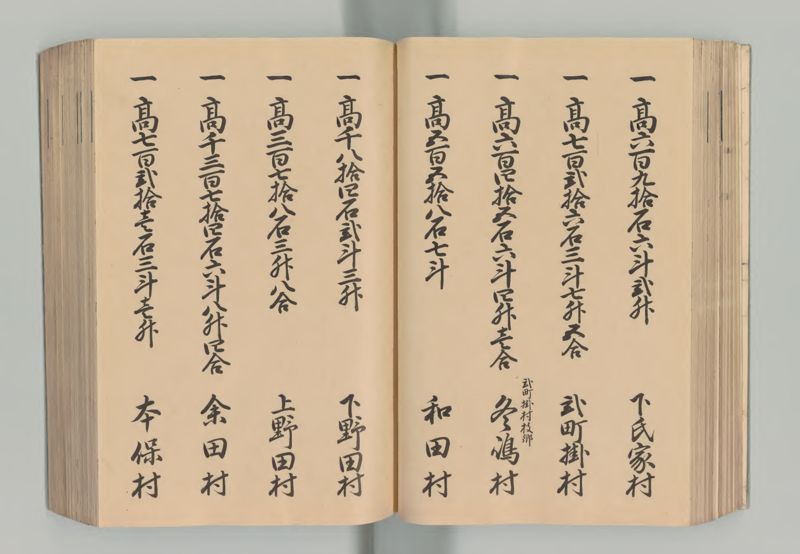 一 高六百九拾石六斗弐升 下氏家村
一 高七百弐拾六石三斗七升五合 弐町掛村
一 高六百四拾五石六斗四升壱合 弐町掛村枝郷 冬嶋村
一 高五百五拾八石七斗 和田村
一 高千八拾四石弐斗三升 下野田村
一 高三百七拾八石三升八合 上野田村
一 高千三百七拾四石六斗八升四合 余田村
一 高七百弐拾壱石三斗壱升 本保村